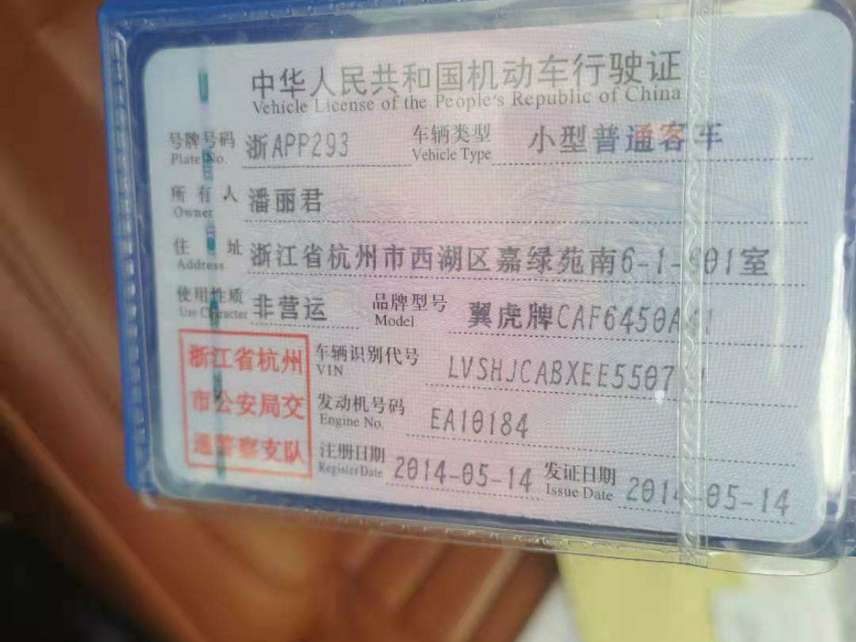 中华人民共和国机动车行驶证
Vehicle License of the People's Republic of China
号牌号码 浙APP293 车辆类型 小型普通客车
Plate No. Vehicle Type
所有人 潘丽君
Owner
住址 浙江省杭州市西湖区嘉绿苑南6-1-
01室
Address
使用性质 非营运 品牌型号 翼虎牌CAF6450A
Use Character Model
浙江省杭州
市公安局交
通警察支队
车辆识别代号 LVSHJCABXEE5507
VIN
发动机号码 EA10184
Engine No.
注册日期 2014-05-14 发证日期 2014-05-14
Register Date Issue Date